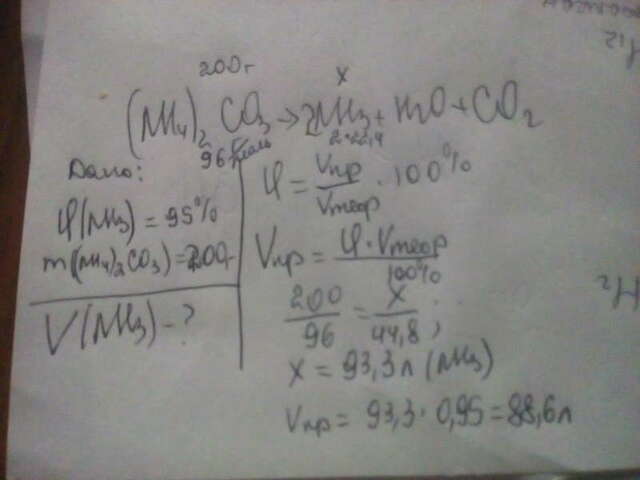 200г
x
(NH4)2 CO3 → 2NH3 + H2O + CO2
96 г/моль
2·22,4
Дано:
φ(NH3) = 95%
m((NH4)2CO3) = 200г
V(NH3) - ?
φ = Vпр / Vтеор · 100%
Vпр = φ · Vтеор / 100%
200 / 96 = x / 44,8 ;
x = 93,3 л (NH3)
Vпр = 93,3 · 0,95 = 88,6 л
H2